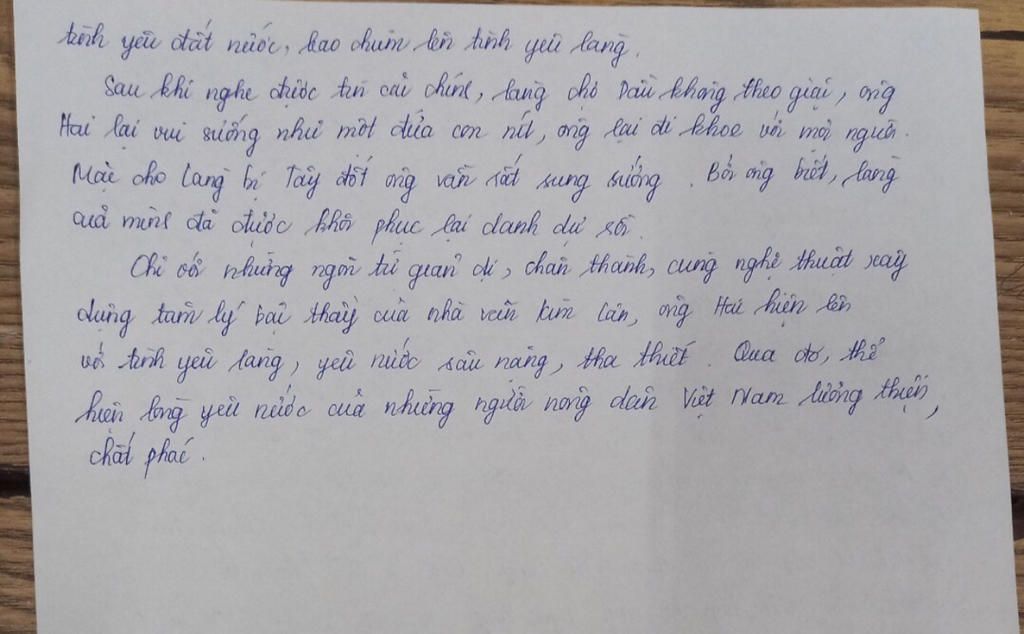 tình yêu đất nước, bao chùm lên tình yêu làng.
Sau khi nghe được tin cải chính, làng chợ Dầu không theo giặc, ông
Hai lại vui sướng như một đứa con nít, ông lại đi khoe với mọi người.
Mặc cho làng bị Tây đốt ông vẫn rất sung sướng. Bởi ông biết, làng
của mình đã được khôi phục lại danh dự rồi.
Chỉ với những ngôn từ giản dị, chân thành, cùng nghệ thuật xây
dựng tâm lý bậc thầy của nhà văn Kim Lân, ông Hai hiện lên
với tình yêu làng, yêu nước sâu nặng, tha thiết. Qua đó, thể
hiện lòng yêu nước của những người nông dân Việt Nam lương thiện,
chất phác.